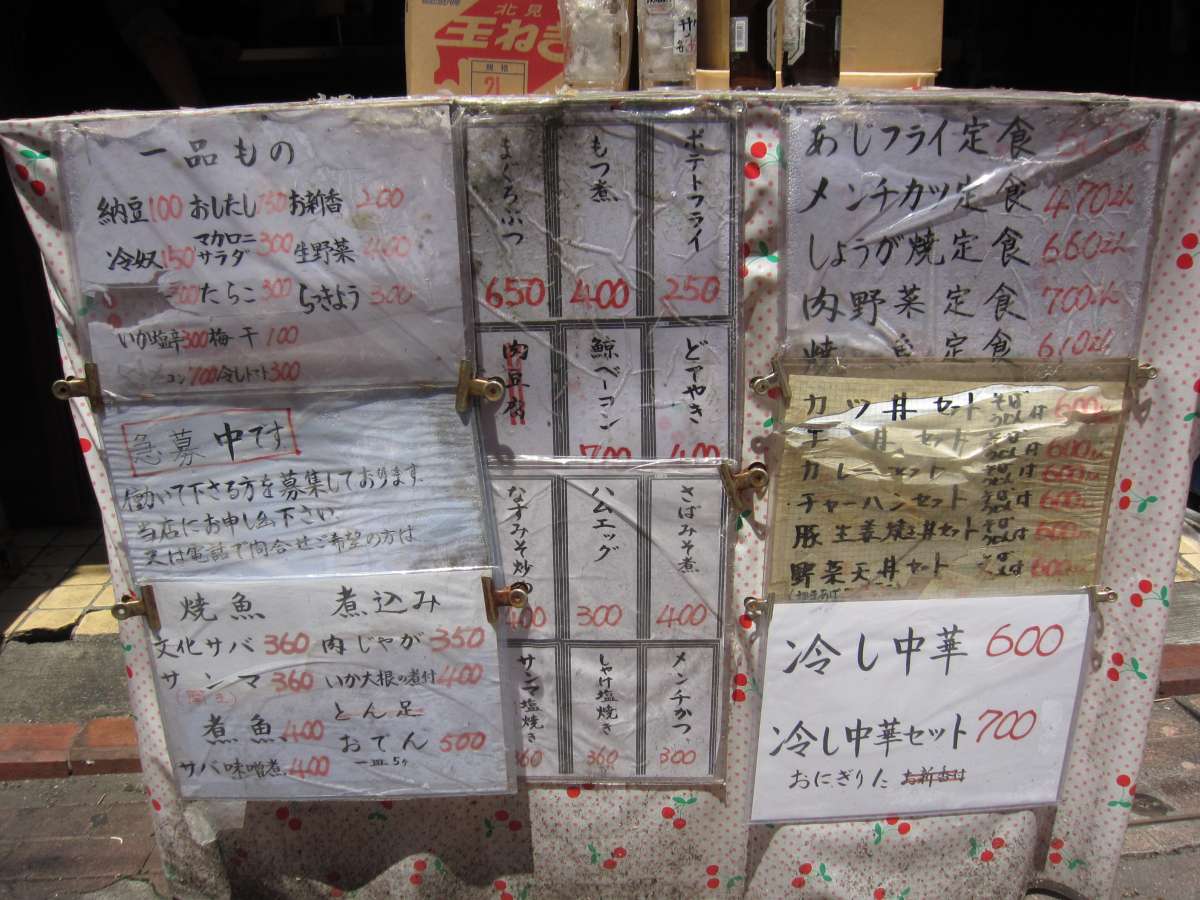 北見
玉ねぎ
規格
2L
一品もの
納豆 100 おしたし 150 お新香 200
冷奴 150 マカロニサラダ 300 生野菜 400
たらこ 300 らっきょう 300
いか塩辛 300 梅干 100
コン 700 冷しトマト 300
急募中です
働いて下さる方を募集しております
当店にお申し出下さい
又は電話で問合せご希望の方は
焼魚 煮込み
文化サバ 360 肉じゃが 350
サンマ 360 いか大根の煮付 400
煮魚 400 とん足
サバ味噌煮 400 おでん 500
一皿5ヶ
まぐろぶつ 650
もつ煮 400
ポテトフライ 250
肉豆腐
鯨ベーコン 700
どてやき 400
なすみそ炒め 400
ハムエッグ 300
さばみそ煮 400
サンマ塩焼き 360
しゃけ塩焼き 360
メンチかつ 300
あじフライ定食 600
メンチカツ定食 470
しょうが焼定食 660
肉野菜定食 700
焼魚定食 610
カツ丼セット そばうどん付 600
天丼セット そばうどん付 600
カレーセット そばうどん付 600
チャーハンセット そばうどん付 600
豚生姜焼き丼セット そばうどん付 600
野菜天丼セット 600
冷し中華 600
冷し中華セット 700
おにぎりた お新香付